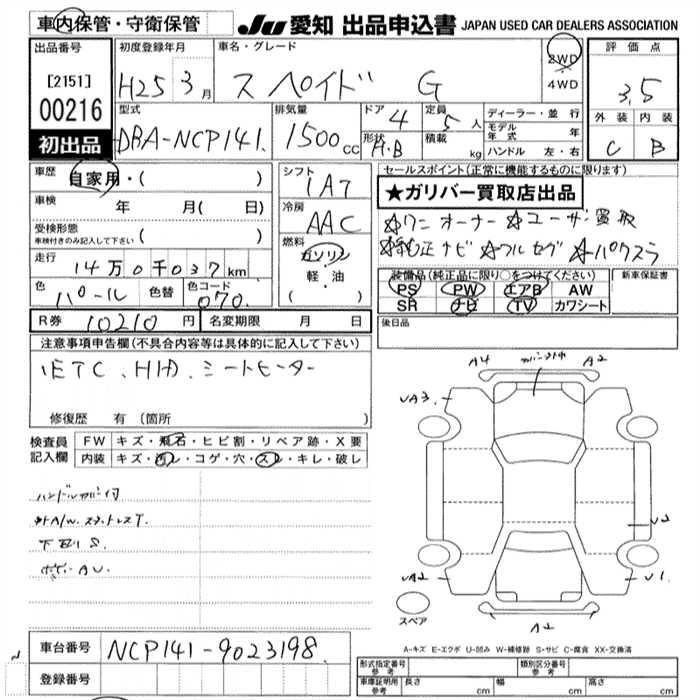 車内保管・守衛保管
JU 愛知 出品申込書 JAPAN USED CAR DEALERS ASSOCIATION
出品番号 初度登録年月 車名・グレード 評価点
[2151] H25 3月 スペイド G 2WD 4WD 3.5
00216 型式 排気量 ドア 4 定員 5人 ディーラー・並行 外装 内装
初出品 DBA-NCP141 1500cc 形状 A・B 積載 kg モデル年式 年 C B
ハンドル 左・右
車歴 自家用・( ) シフト 1AT セールスポイント(正常に機能するものに限ります)
★ガリバー買取店出品
車検 年 月( 日) 冷房 AAC ☆ワンオーナー ☆ユーザー買取
受検形態 車検付きのみ記入して下さい ( ) 燃料 ガソリン ☆純正ナビ ☆フルセグ ☆パワスラ
走行 14万0千037km 軽・油 装備品(純正品に限り○をつけてください) 新車保証書
色 パール 色替 色コード 070 ( ) PS PW エアB AW
SR ナビ TV カワシート
R券 10210円 名変期限 月 日 後日品
注意事項申告欄(不具合内容等は具体的に記入して下さい)
ETC、HID、シートヒーター
修復歴 有 (箇所 )
検査員記入欄 FW キズ・飛石・ヒビ割・リペア跡・X要
内装 キズ・ヨゴレ・コゲ・穴・スレ・キレ・破レ
ハンドルカバー付
下廻りS
ボデー AU
A4 A2
UA3
U2
UA2 U1
スペア
A2
A-キズ E-エクボ U-凹み W-補修跡 S-サビ C-腐食 XX-交換済
車台番号 NCP141-9023198
登録番号
形式指定番号 参考 類別区分番号 参考
車庫証明用 参考 長さ cm 幅 cm 高さ cm